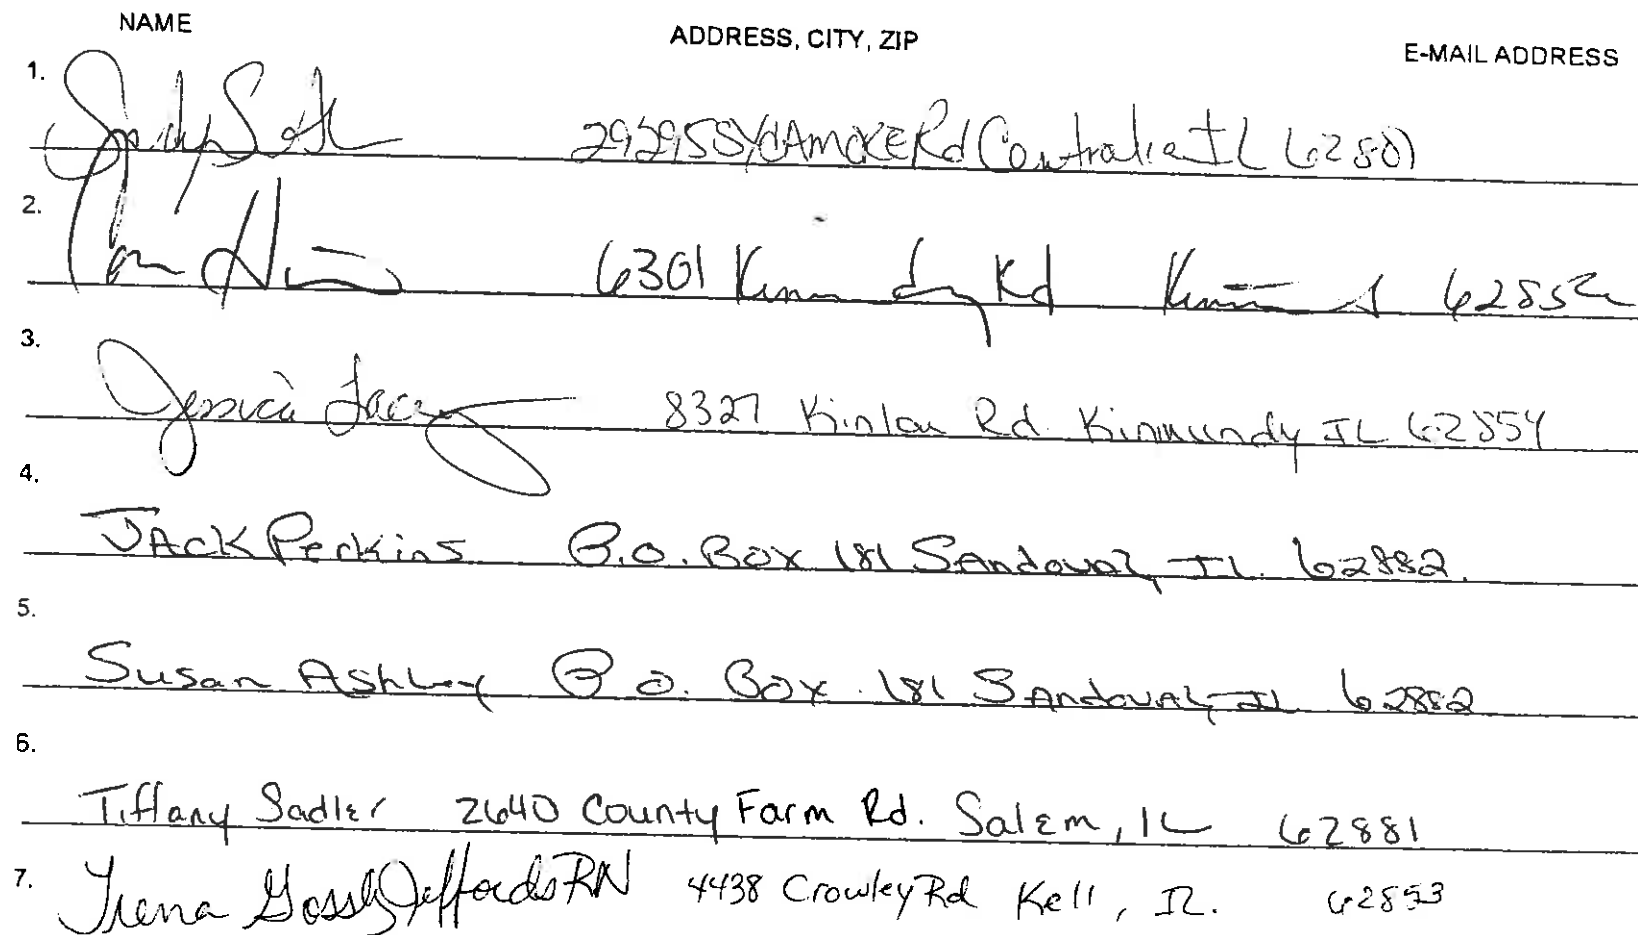 NAME ADDRESS, CITY, ZIP E-MAIL ADDRESS
1. 2929 SYCAMORE Rd Centralia IL 62801
2. 6301 Rd
3. Jessica Lacey 8327 Rd. Kinmundy IL 62854
4. JACK Perkins P.O. Box 181 SAndoval, IL. 62882.
5. Susan Ashley P.O. Box 181 SAndovAL, IL 62882
6. Tiffany Sadler 2640 County Farm Rd. Salem, IL 62881
7. RN 4438 Crowley Rd Kell, IL. 62853